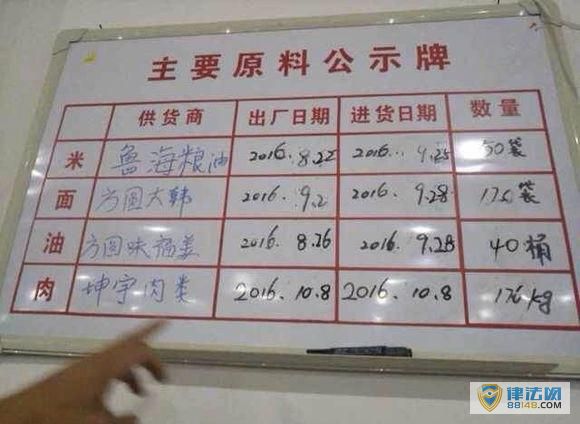 主要原料公示牌
供货商 出厂日期 进货日期 数量
米 鲁海粮油 2016.8.22 2016.9.25 50袋
面 方圆大韩 2016.9.2 2016.9.28 袋
油 方圆味福美 2016.8.26 2016.9.28 40桶
肉 坤宇肉类 2016.10.8 2016.10.8 176kg
律法网
88148.COM